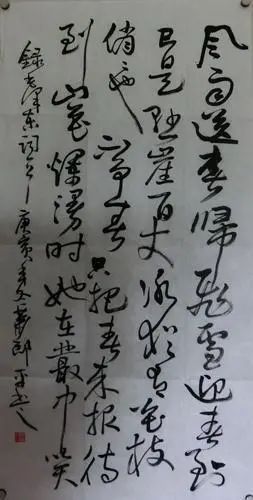 风雨送春归飞雪迎春到
已是悬崖百丈冰犹有花枝
俏俏也不争春只把春来报待
到山花烂漫时她在丛中笑
录毛泽东词一首庚寅年冬